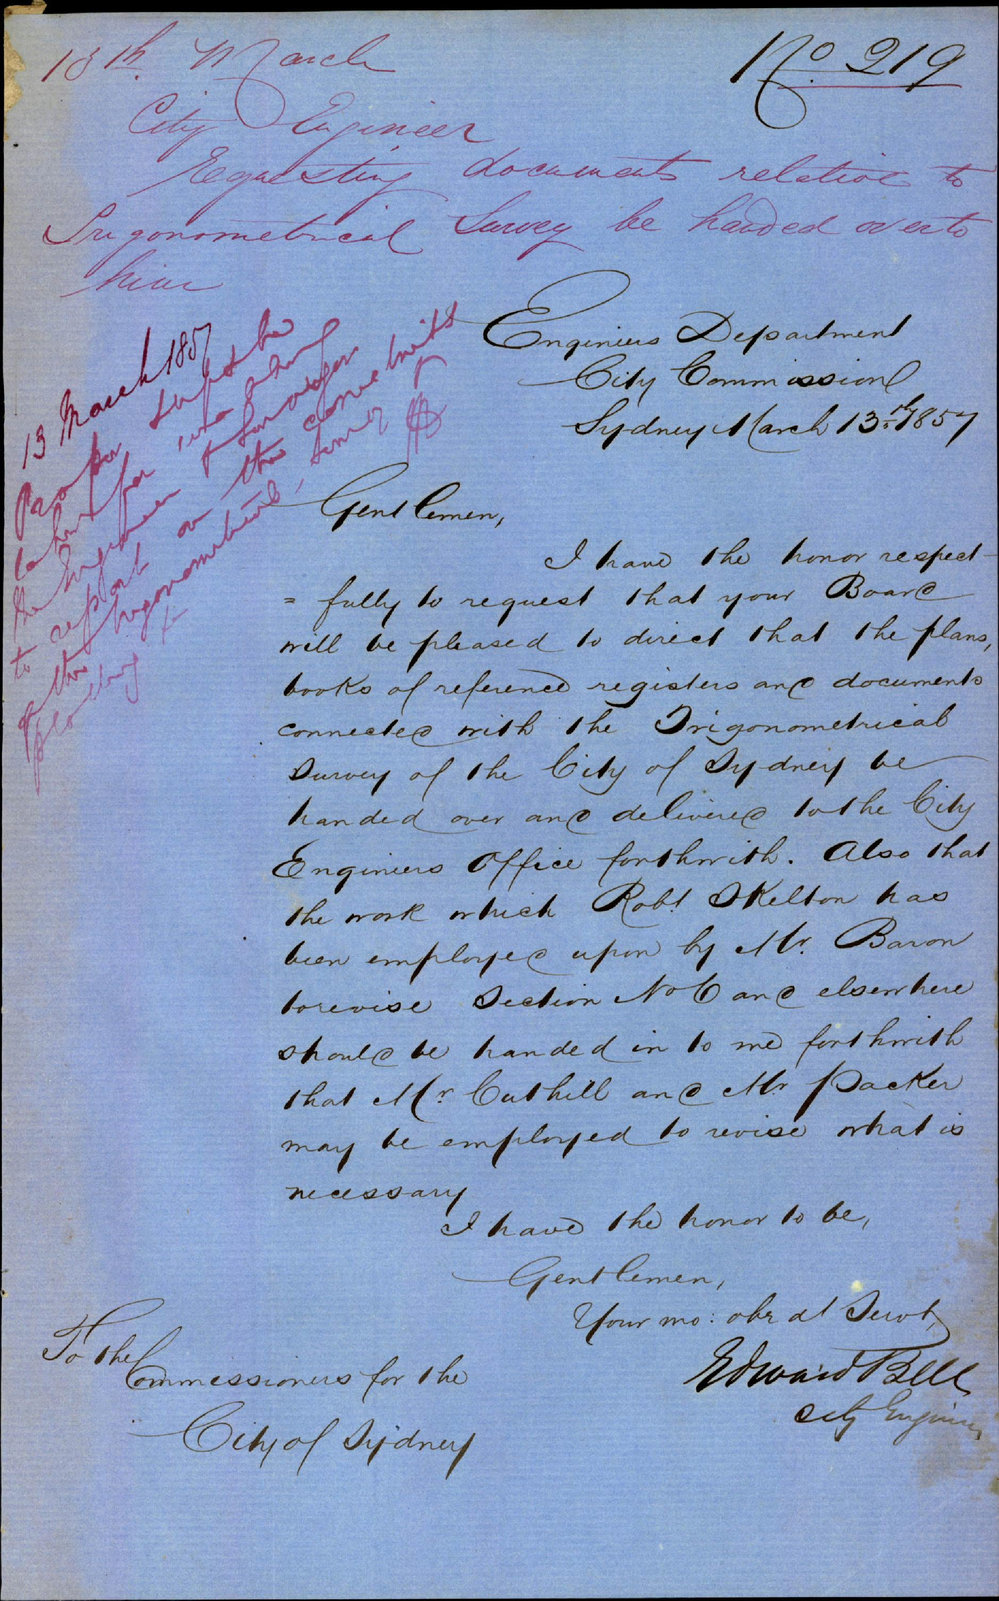 No 219
13th March
City Engineer
Requesting documents relative to
Trigonometrical Survey be handed over to
him
Engineers Department
City Commission
Sydney March 13th 1857
13 March 1857
the Engineer
to report on the
Gentlemen,
I have the honor respect-
= fully to request that your Board
will be pleased to direct that the plans,
books of reference registers and documents
connected with the Trigonometrical
Survey of the City of Sydney be
handed over and delivered to the City
Engineers Office forthwith. Also that
the work which Robt Skelton has
been employed upon by Mr. Baron
to revise Section No 6 and elsewhere
should be handed in to me forthwith
that Mr Cuthill and Mr Packer
may be employed to revise what is
necessary
I have the honor to be,
Gentlemen,
Your mo: obedt Servt,
Edward Bell
City Engineer
To the
Commissioners for the
City of Sydney